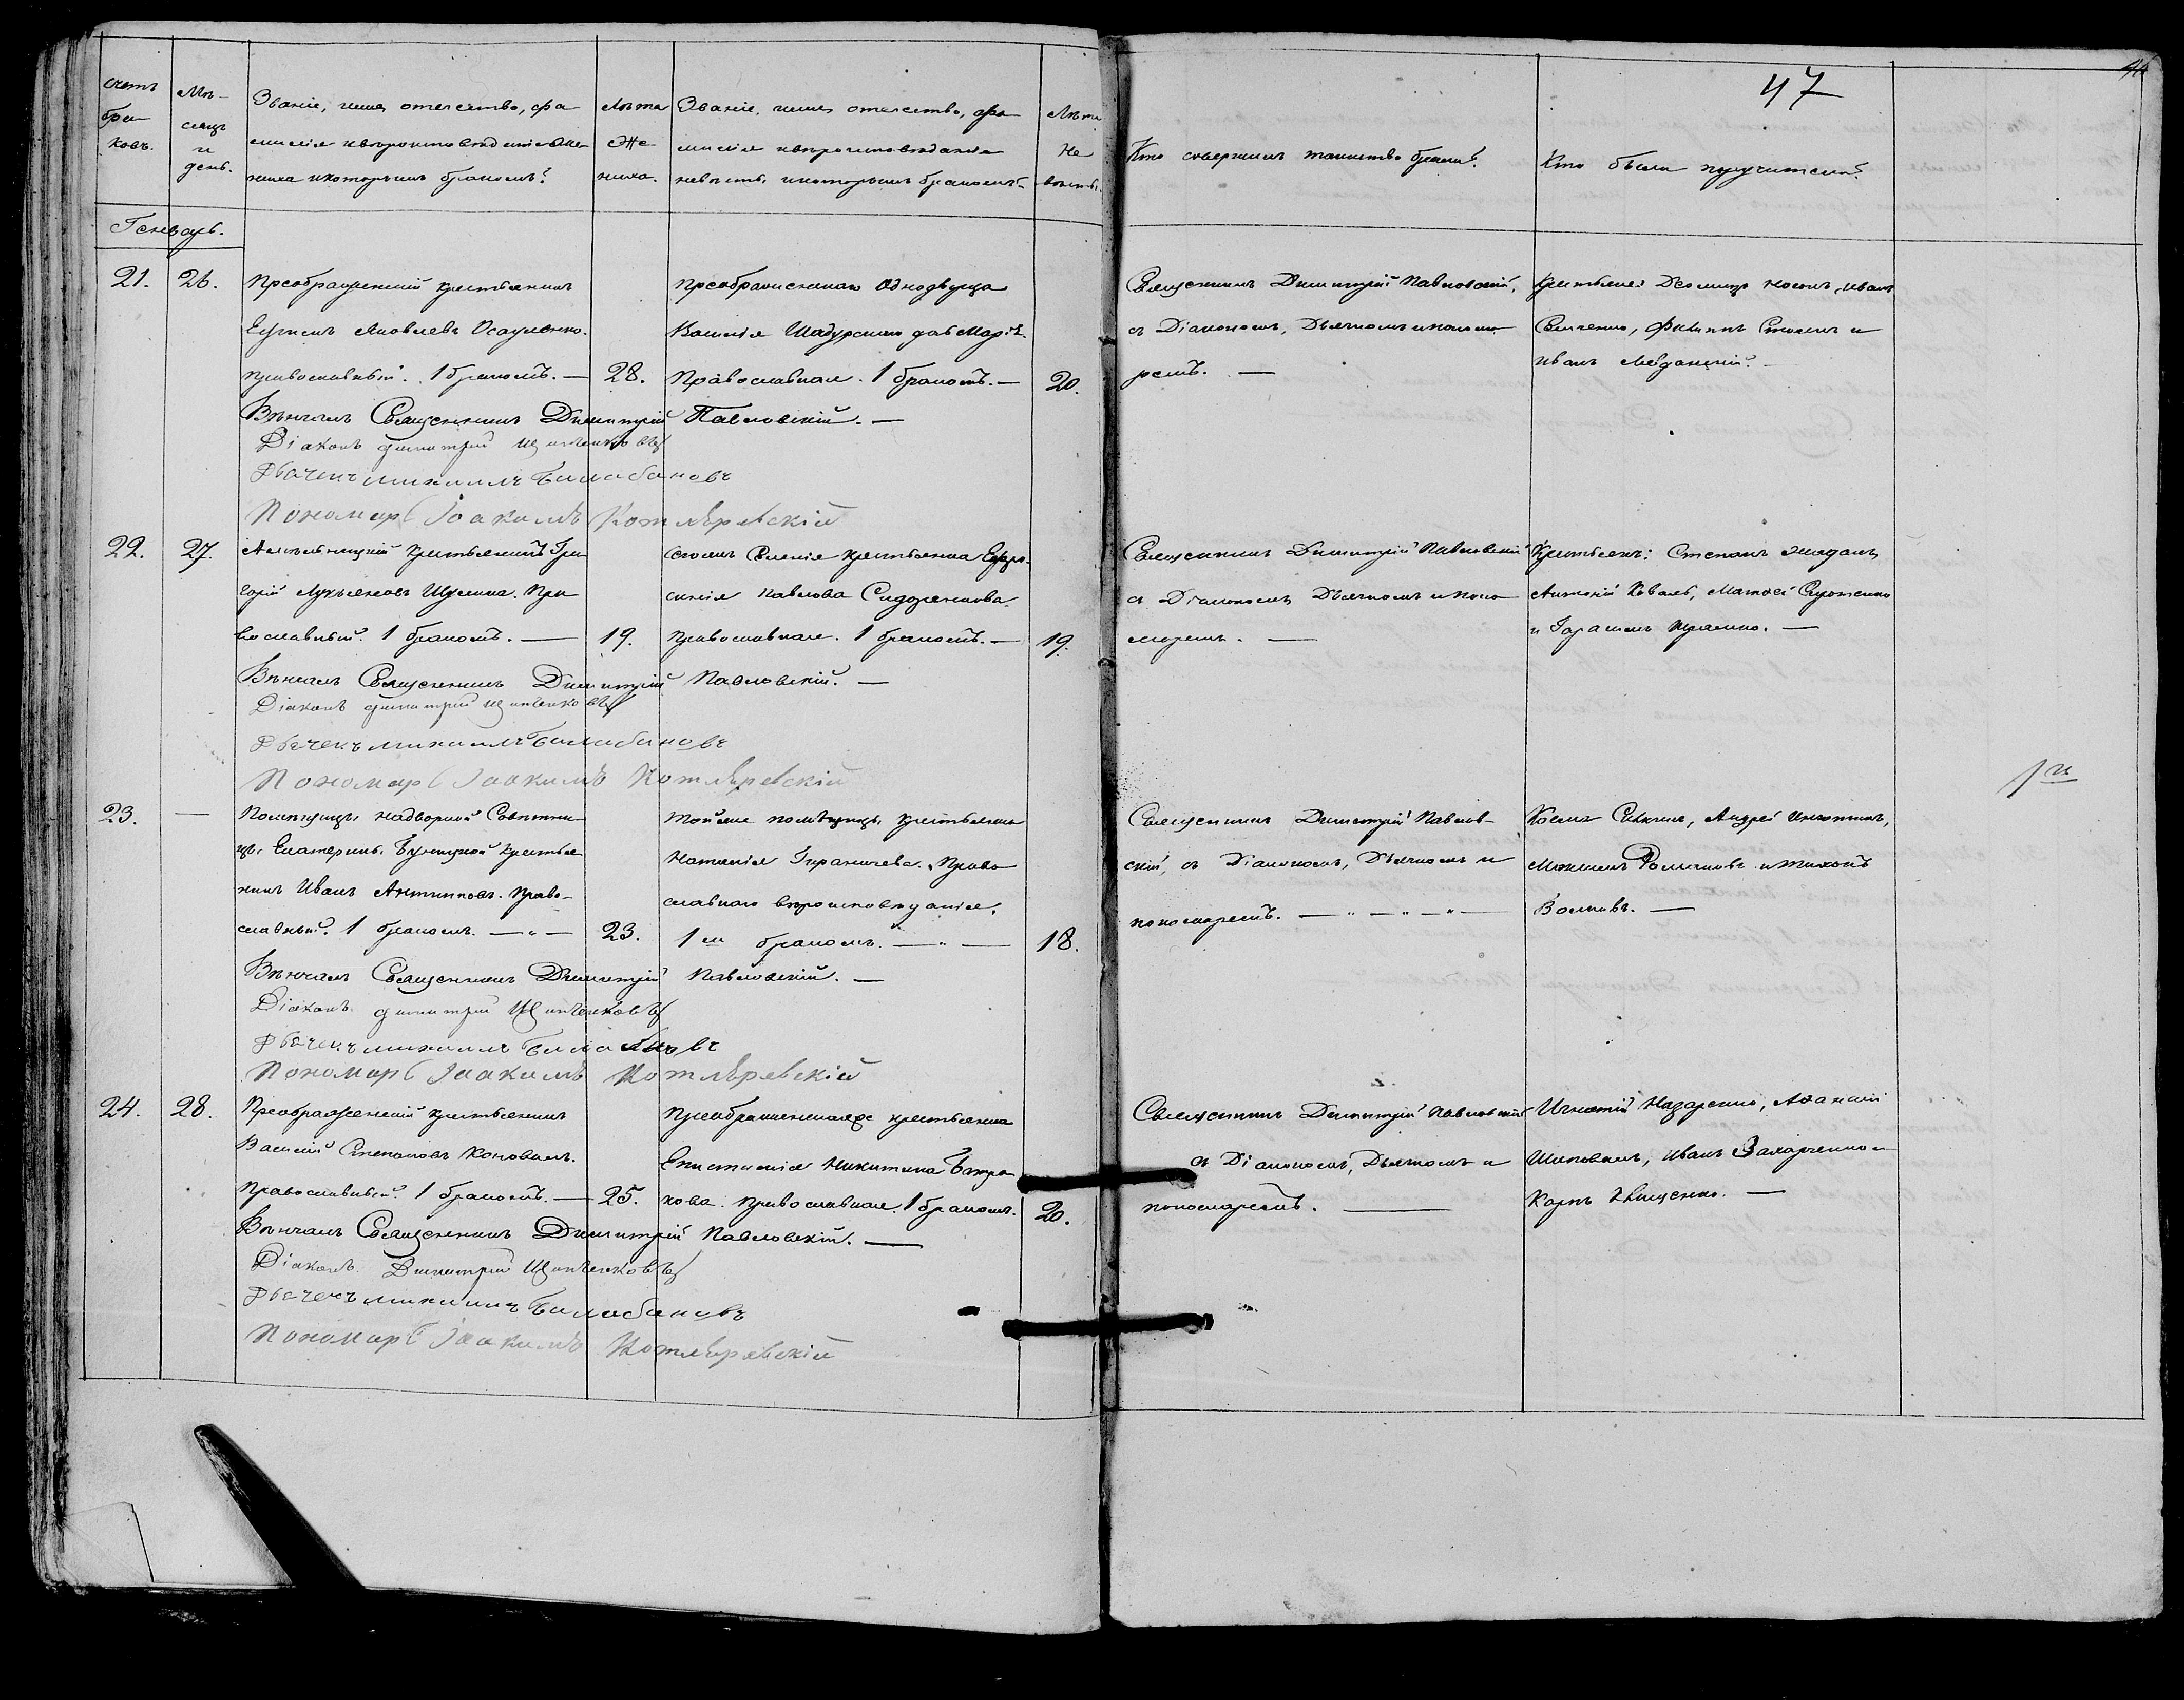 47
Счетъ браковъ.
Мѣсяцъ и день.
Званіе, имя, отечество, фамилія и вѣроисповѣданіе жениха и которымъ бракомъ?
Лѣта жениха.
Званіе, имя, отечество, фамилія и вѣроисповѣданіе невѣсты, и которымъ бракомъ?
Лѣта невѣсты.
Кто совершилъ таинство брака?
Кто были поручители?
Генварь.
21. 26. Преображенскій крестьянинъ
Яковлевъ Осауленко.
православный. 1 бракомъ. — 28.
Преображенскаго однодворца
Василія дочь Марія
Православная. 1 бракомъ. — 20.
Священникъ Димитрій Павловскій,
съ Діакономъ, Дьячкомъ и понома-
ремъ. —
Крестьяне: Носокъ, Иванъ
Филиппъ и
Иванъ
Вѣнчалъ Священникъ Димитрій Павловскій. —
Діаконъ Димитрій
Дьячекъ Михаилъ Балабановъ
Пономарь Іоакимъ Котляревскій
22. 27. крестьянинъ Гри-
горій Лукьяновъ Пра-
вославный. 1 бракомъ. — 19.
селенія крестьянка Евфро-
синія Павлова Сидоренкова.
православная. 1 бракомъ. — 19.
Священникъ Димитрій Павловскій
съ Діакономъ, Дьячкомъ и поно-
маремъ. —
Крестьяне: Степанъ
Антоній Коваль, Матвей
и —
Вѣнчалъ Священникъ Димитрій Павловскій. —
Діаконъ Димитрій
Дьячекъ Михаилъ Балабановъ
Пономарь Іоакимъ Котляревскій
23. — Помѣщицы Надворной Совѣтни-
цы Екатерины крестья-
нинъ Иванъ Антиповъ. Право-
славный. 1 бракомъ. — 23.
Той же помѣщицы крестьянка
Наталія Право-
славнаго вѣроисповѣданія,
1м бракомъ. — 18.
Священникъ Димитрій Павлов-
скій, съ Діакономъ, Дьячкомъ и
пономаремъ. —
Косма Андрей
Романовъ и Тихонъ
Волковъ. —
Вѣнчалъ Священникъ Димитрій Павловскій. —
Діаконъ Димитрій
Дьячекъ Михаилъ Балабановъ
Пономарь Іоакимъ Котляревскій
24. 28. Преображенскій крестьянинъ
Василій Степановъ Коновалъ.
Православный. 1 бракомъ. — 25.
Преображенская крестьянка
Епистимія Никитина
Православная. 1 бракомъ. 20.
Священникъ Димитрій Павловскій
съ Діакономъ, Дьячкомъ и
пономаремъ. —
Игнатій Назаренко, Аѳанасій
Шаповалъ, Иванъ Захарченко и
Карпъ —
Вѣнчалъ Священникъ Димитрій Павловскій. —
Діаконъ Димитрій
Дьячекъ Михаилъ Балабановъ
Пономарь Іоакимъ Котляревскій